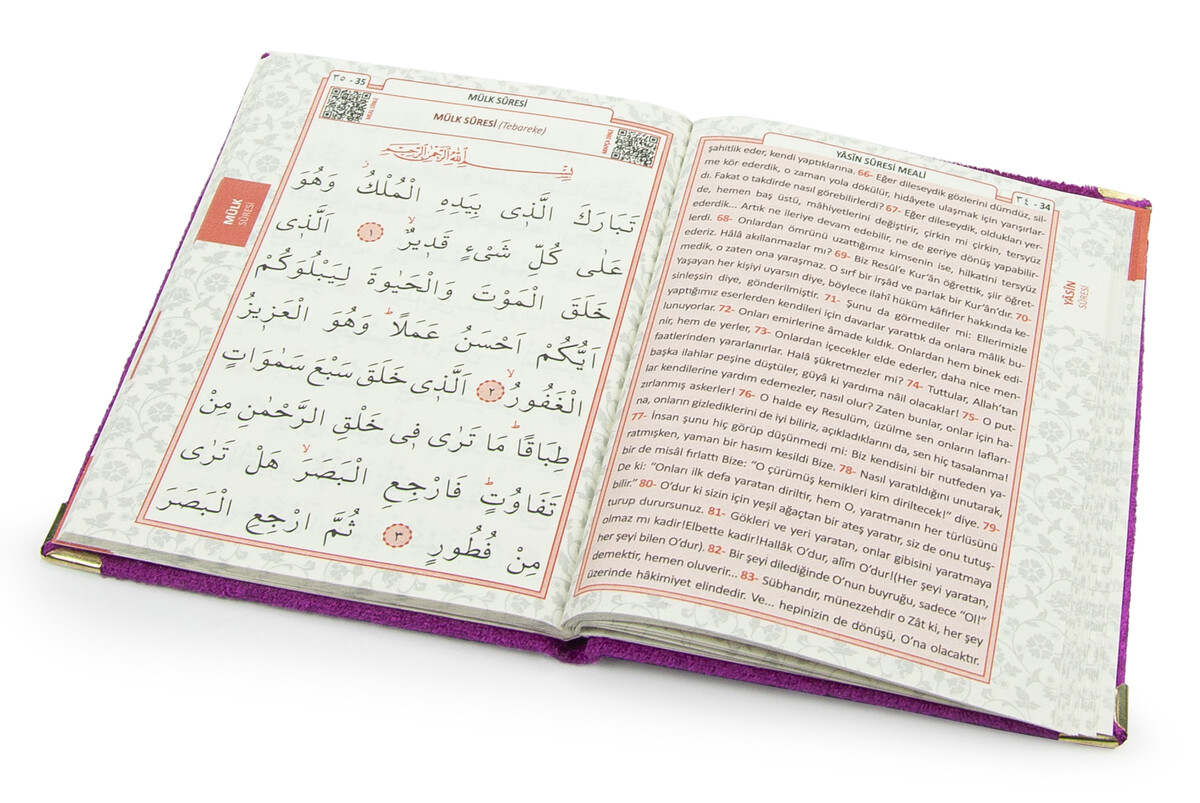 ٣٥ - 35
MÜLK SÛRESİ
MÜLK SÛRESİ (Tebareke)
بِسْمِ اللّٰهِ الرَّحْمٰنِ الرَّحٖيمِ
تَبَارَكَ الَّذٖى بِيَدِهِ الْمُلْكُ وَهُوَ
عَلٰى كُلِّ شَىْءٍ قَدٖيرٌ ۙ ﴿١﴾ اَلَّذٖى
خَلَقَ الْمَوْتَ وَالْحَيٰوةَ لِيَبْلُوَكُمْ
اَيُّكُمْ اَحْسَنُ عَمَلًا ؕ وَهُوَ الْعَزٖيزُ
الْغَفُورُ ۙ ﴿٢﴾ اَلَّذٖى خَلَقَ سَبْعَ سَمٰوَاتٍ
طِبَاقًا ؕ مَا تَرٰى فٖى خَلْقِ الرَّحْمٰنِ مِنْ
تَفَاوُتٍ ؕ فَارْجِعِ الْبَصَرَ ۙ هَلْ تَرٰى
مِنْ فُطُورٍ ﴿٣﴾ ثُمَّ ارْجِعِ الْبَصَرَ
MÜLK
SÛRESİ
YÂSÎN SÛRESİ MEALİ
٣٤ - 34
şahitlik eder, kendi yaptıklarına. 66- Eğer dileseydik gözlerini dümdüz, sil-
me kör ederdik, o zaman yola dökülür, hidâyete ulaşmak için yarışırlar-
dı. Fakat o takdirde nasıl görebilirlerdi? 67- Eğer dileseydik, oldukları yer-
de, hemen baş üstü, mahiyetlerini değiştirir, çirkin mi çirkin, tersyüz
ederdik... Artık ne ileriye devam edebilir, ne de geriye dönüş yapabilir-
lerdi. 68- Onlardan ömrünü uzattığımız kimsenin ise, hilkatini tersyüz
ederiz. Hâlâ akıllanmazlar mı? 69- Biz Resûl'e Kur'ân öğrettik, şiir öğret-
medik, o zaten ona yaraşmaz. O sırf bir irşâd ve parlak bir Kur'ân'dır. 70-
Yaşayan her kişiyi uyarsın diye, böylece ilahî hüküm kâfirler hakkında ke-
sinleşsin diye, gönderilmiştir. 71- Şunu da görmediler mi: Ellerimizle
yaptığımız eserlerden kendileri için davarlar yarattık da onlara mâlik bu-
lunuyorlar. 72- Onları emirlerine âmade kıldık. Onlardan hem binek edi-
nir, hem de yerler, 73- Onlardan içecekler elde ederler, daha nice men-
faatlerinden yararlanırlar. Halâ şükretmezler mi? 74- Tuttular, Allah'tan
başka ilahlar peşine düştüler, güyâ ki yardıma nâil olacaklar! 75- O put-
lar kendilerine yardım edemezler, nasıl olur? Zaten bunlar, onlar için ha-
zırlanmış askerler! 76- O halde ey Resulüm, üzülme sen onların lafları-
na, onların gizlediklerini de iyi biliriz, açıkladıklarını da, sen hiç tasalanma!
77- İnsan şunu hiç görüp düşünmedi mi: Biz kendisini bir nutfeden ya-
ratmışken, yaman bir hasım kesildi Bize. 78- Nasıl yaratıldığını unutarak,
bir de misâl fırlattı Bize: "O çürümüş kemikleri kim diriltecek!" diye. 79-
De ki: "Onları ilk defa yaratan diriltir, hem O, yaratmanın her türlüsünü
bilir." 80- O'dur ki sizin için yeşil ağaçtan bir ateş yaratır, siz de onu tutuş-
turup durursunuz. 81- Gökleri ve yeri yaratan, onlar gibisini yaratmaya
olmaz mı kadir!Elbette kadir!Hallâk O'dur, alîm O'dur!(Her şeyi yaratan,
her şeyi bilen O'dur). 82- Bir şeyi dilediğinde O'nun buyruğu, sadece "Ol!"
demektir, hemen oluverir... 83- Sübhandır, münezzehdir o Zât ki, her şey
üzerinde hâkimiyet elindedir. Ve... hepinizin de dönüşü, O'na olacaktır.
YÂSÎN
SÛRESİ